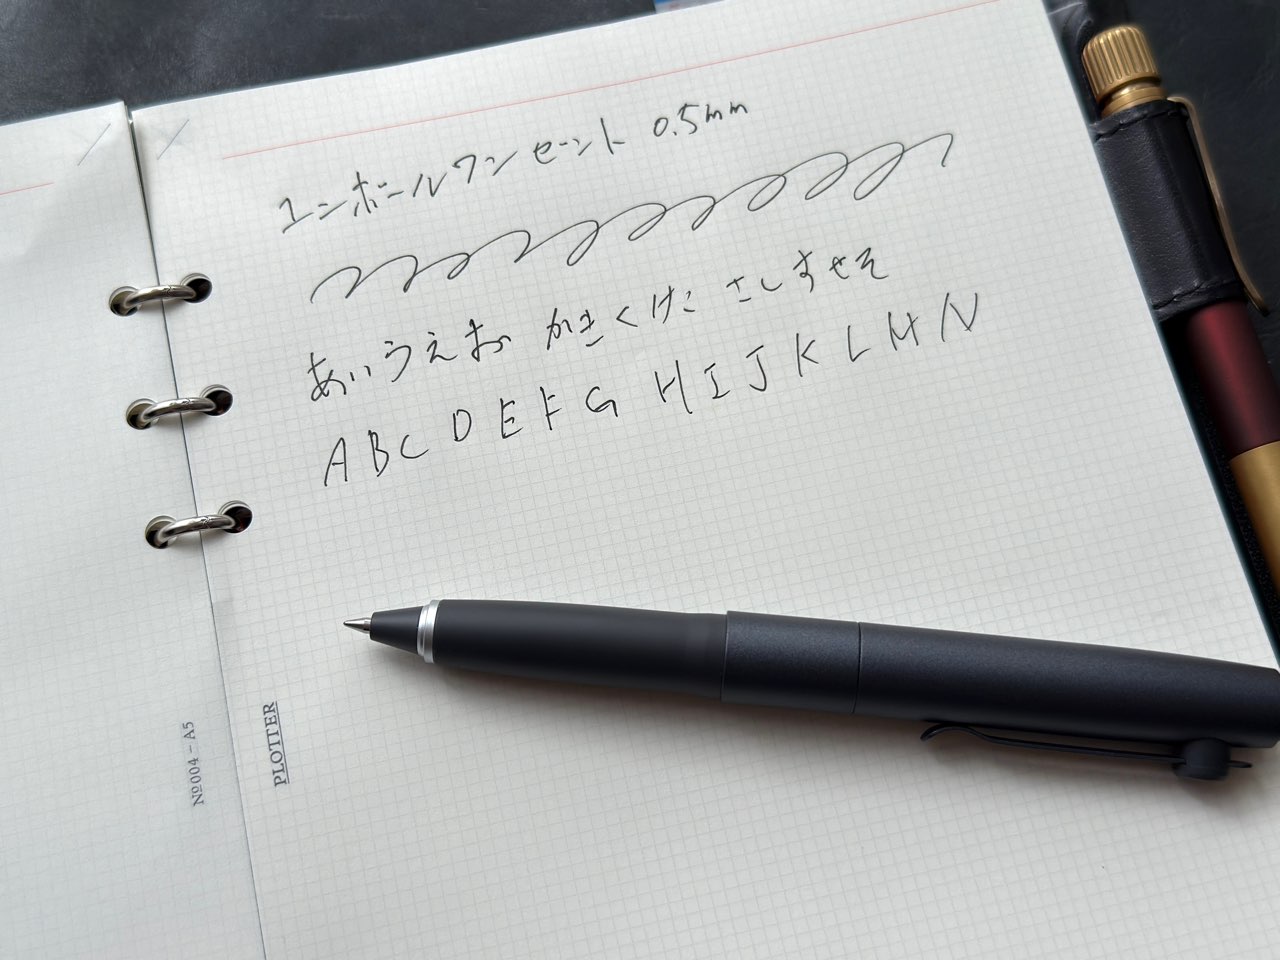 ユニボールワン セーント 0.5mm
あいうえお かきくけこ さしすせそ
A B C D E F G H I J K L M N
PLOTTER
№004 – A5